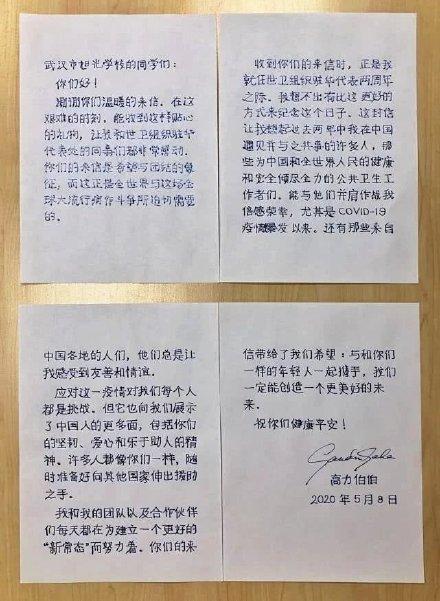 武汉市旭光学校的同学们：
你们好！
谢谢你们温暖的来信。在这
艰难的时刻，能收到这样贴心
的礼物，让我和世卫组织驻华
代表处的同事们都非常感动。
你们的来信是希望与团结的象
征，而这正是全世界与这场全
球大流行病作斗争所迫切需要
的。
收到你们的来信时，正是我
就任世卫组织驻华代表两周年
之际。我想不出有比这更好的
方式来纪念这个日子。这封信
让我想起过去两年中我在中国
遇见并与之共事的许多人，那
些为中国和全世界人民的健康
和安全倾尽全力的公共卫生工
作者们。能与他们并肩作战我
倍感荣幸，尤其是COVID-19
疫情暴发以来。还有那些来自
中国各地的人们，他们总是让
我感受到友善和情谊。
应对这一疫情对我们每个人
都是挑战。但它也向我们展示
了中国人的更多面，包括你们
的坚韧、爱心和乐于助人的精
神。许多人都像你们一样，随
时准备好向其他国家伸出援助
之手。
我和我的团队以及合作伙伴
们每天都在为建立一个更好的
“新常态”而努力着。你们的来
信带给了我们希望：与和你们
一样的年轻人一起携手，我们
一定能创造一个更美好的未
来。
祝你们健康平安！
高力伯伯
2020年5月8日